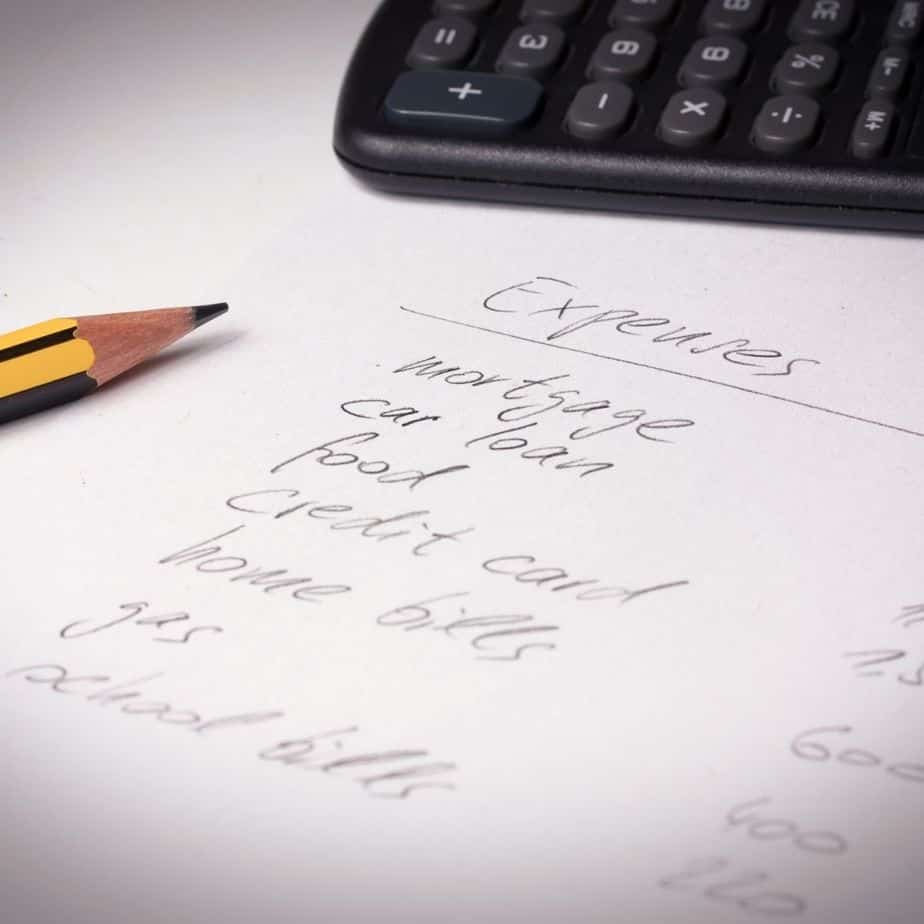 CE
MRC
=
3
6
9
%
M-
+
-
×
÷
M+
Expenses
mortgage
car loan
food
credit card
home bills
gas
school bills
600
400